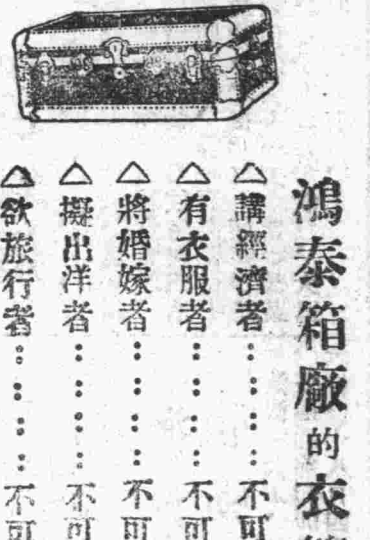 鴻泰箱廠的衣
△講經濟者……不可
△有衣服者……不可
△將婚嫁者……不可
△擬出洋者……不可
△欲旅行者……不可